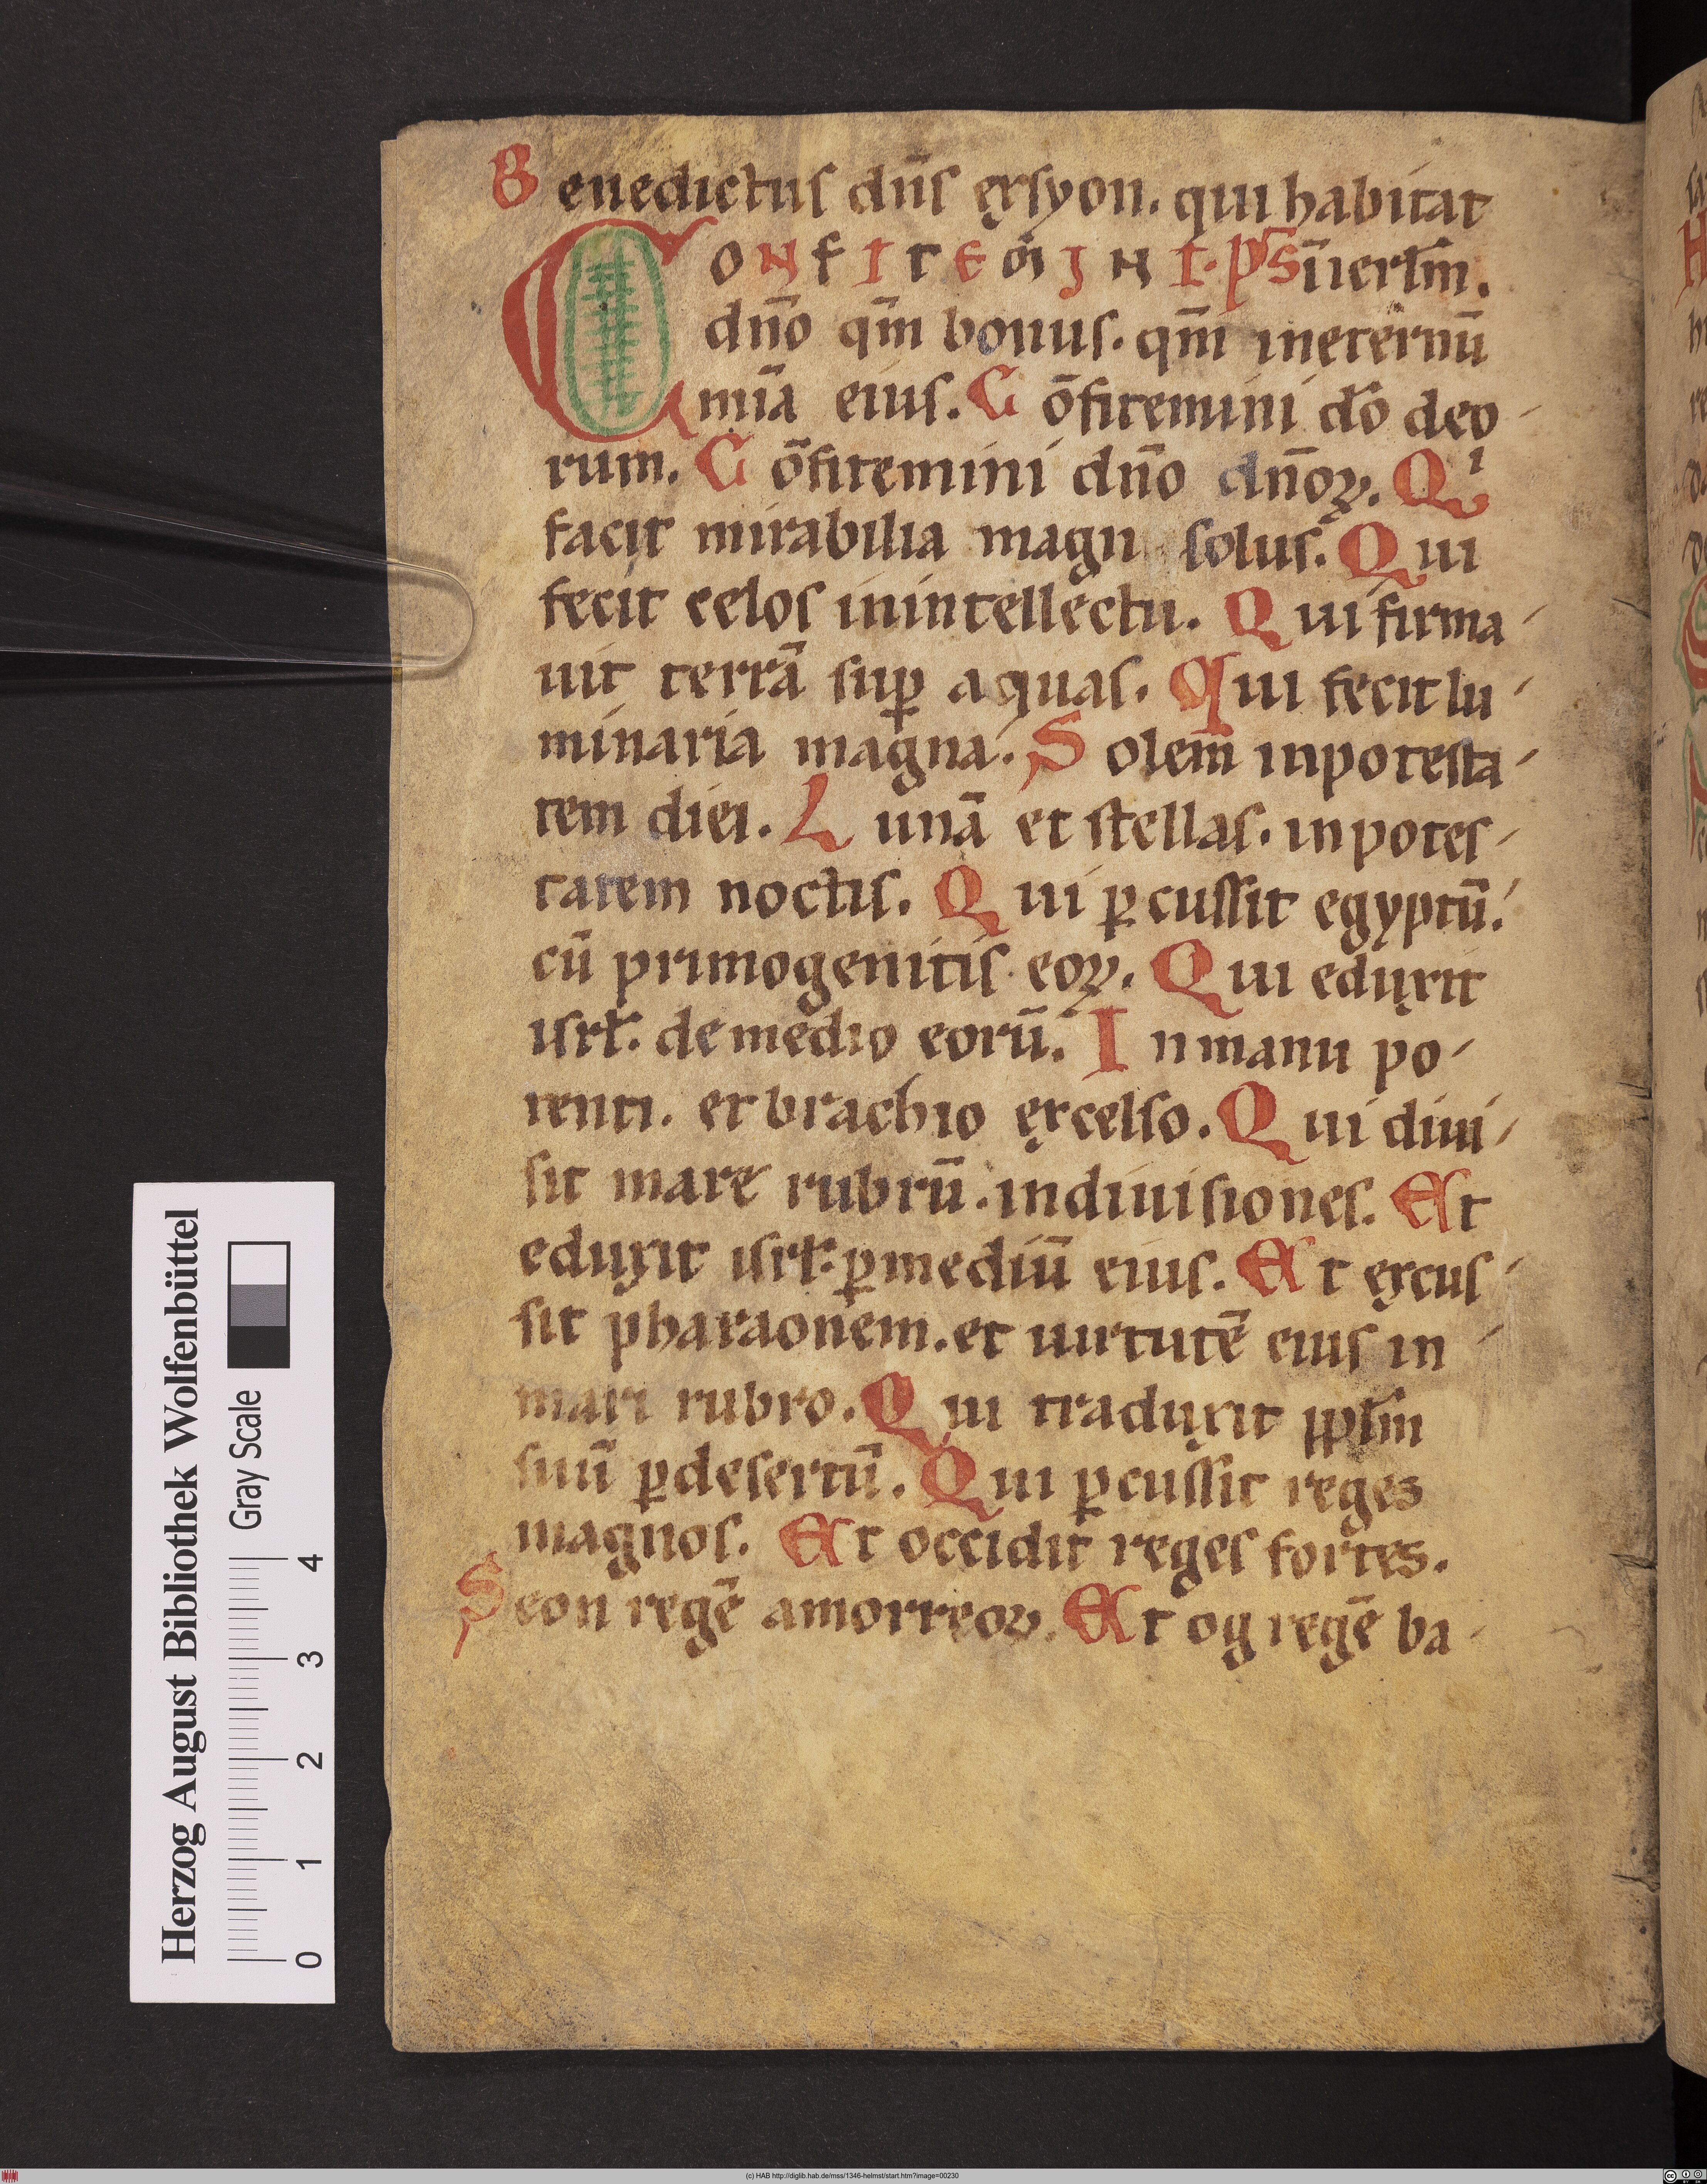 Benedictus dñs exsyon. qui habitat
CONFITEMINI. ps
ı̄ ierl̄m.
dño qm̄ bonus. qm̄ ineternū
mı̄a eius. Cōfitemini dō deo-
rum. Cōfitemini dño dñoꝝ. Qⁱ
facit mirabilia magn solus. Qui
fecit celos inintellectu. Qui firma-
uit terrā suꝑ aquas. Qui fecit lu-
minaria magna. Solem inpotesta-
tem diei. Lunā et stellas. inpotes-
tatem noctis. Qui ꝑcussit egyptū.
cū primogenitis eoꝝ. Qui eduxit
isrł. demedio eorū. Inmanu po-
tenti. et brachio excelso. Qui diui-
sit mare rubrū. indiuisiones. Et
eduxit isrł. ꝑmediū eius. Et excus-
sit pharaonem. et uirtutē eius in
mari rubro. Qui traduxit pplm̄
suū ꝑdesertū. Qui ꝑcussit reges
magnos. Et occidit reges fortes.
Seon regē amorreoꝝ. Et og regē ba-
Herzog August Bibliothek Wolfenbüttel
Gray Scale
0 1 2 3 4
(c) HAB http://diglib.hab.de/mss/1346-helmst/start.htm?image=00230